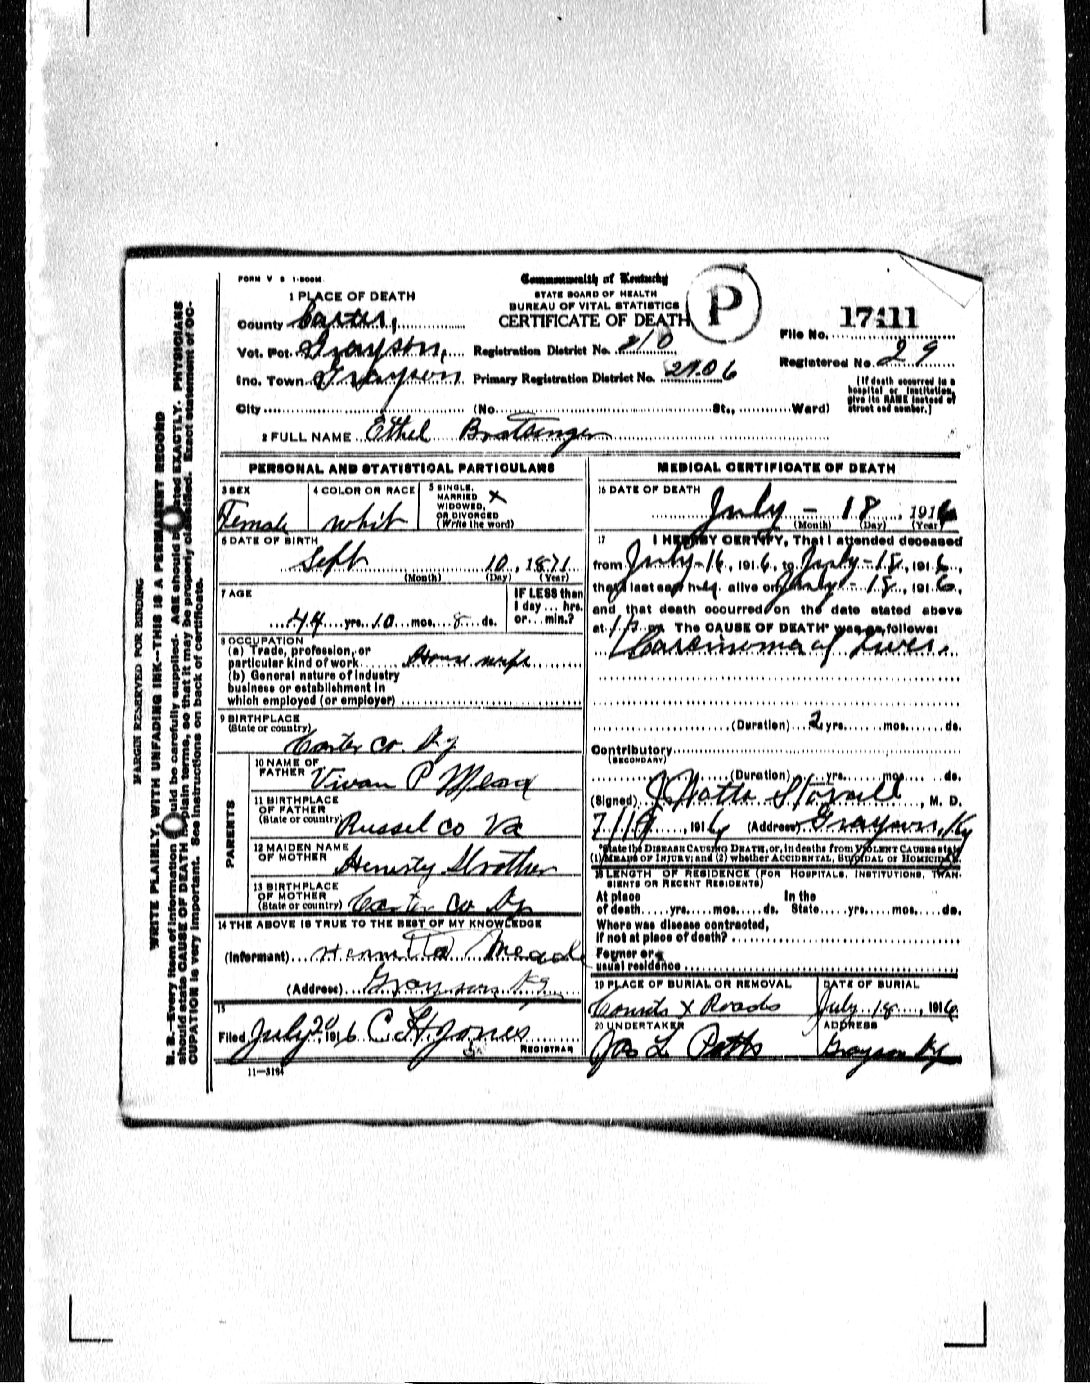 FORM V S 1-500M
Commonwealth of Kentucky
STATE BOARD OF HEALTH
BUREAU OF VITAL STATISTICS
CERTIFICATE OF DEATH
P
File No. 17411
Registered No. 29
[If death occurred in a hospital or institution, give its NAME instead of street and number.]
1 PLACE OF DEATH
County Carter,
Vot. Pct. Grayson, Registration District No. 210
Inc. Town Grayson Primary Registration District No.
City (No. St., Ward)
2 FULL NAME Ethel
PERSONAL AND STATISTICAL PARTICULARS
3 SEX
Female
4 COLOR OR RACE
whit
5 SINGLE, MARRIED X WIDOWED, OR DIVORCED (Write the word)
6 DATE OF BIRTH
Sept 10, 1871
(Month) (Day) (Year)
7 AGE
44 yrs. 10 mos. 8 ds.
IF LESS than 1 day ... hrs. or ... min.?
8 OCCUPATION
(a) Trade, profession, or particular kind of work House wife
(b) General nature of industry
business or establishment in
which employed (or employer)
9 BIRTHPLACE
(State or country) Carter Co Ky
PARENTS
10 NAME OF FATHER Vivan P Mead
11 BIRTHPLACE OF FATHER (State or country) Russel Co Va
12 MAIDEN NAME OF MOTHER Strother
13 BIRTHPLACE OF MOTHER (State or country) Carter Co Ky
14 THE ABOVE IS TRUE TO THE BEST OF MY KNOWLEDGE
(Informant) Meade
(Address) Grayson Ky
15
Filed July 20 1916 C H Jones
REGISTRAR
11—3184
MEDICAL CERTIFICATE OF DEATH
16 DATE OF DEATH
July - 18, 1916
(Month) (Day) (Year)
17 I HEREBY CERTIFY, That I attended deceased
from July - 16, 1916, to July - 18, 1916,
that I last saw h alive on July - 18, 1916,
and that death occurred on the date stated above
at 1 P m. The CAUSE OF DEATH* was as follows:
Carcinoma of Liver.
(Duration) 2 yrs. mos. ds.
Contributory
(SECONDARY)
(Duration) yrs. mos. ds.
(Signed) J Watts Stovall, M. D.
7/19, 1916 (Address) Grayson, Ky
*State the DISEASE CAUSING DEATH, or, in deaths from VIOLENT CAUSES state
(1) MEANS OF INJURY; and (2) whether ACCIDENTAL, SUICIDAL OR HOMICIDAL.
18 LENGTH OF RESIDENCE (FOR HOSPITALS, INSTITUTIONS, TRANSIENTS OR RECENT RESIDENTS)
At place of death yrs. mos. ds. In the State yrs. mos. ds.
Where was disease contracted,
If not at place of death?
Former or
usual residence
19 PLACE OF BURIAL OR REMOVAL
Counts X Roads
DATE OF BURIAL
July 18, 1916
20 UNDERTAKER
Jas L Potts
ADDRESS
Grayson Ky
MARGIN RESERVED FOR BINDING
WRITE PLAINLY, WITH UNFADING INK—THIS IS A PERMANENT RECORD
N. B.—Every item of information should be carefully supplied. AGE should be stated EXACTLY. PHYSICIANS
should state CAUSE OF DEATH in plain terms, so that it may be properly classified. Exact statement of OC-
CUPATION is very important. See instructions on back of certificate.